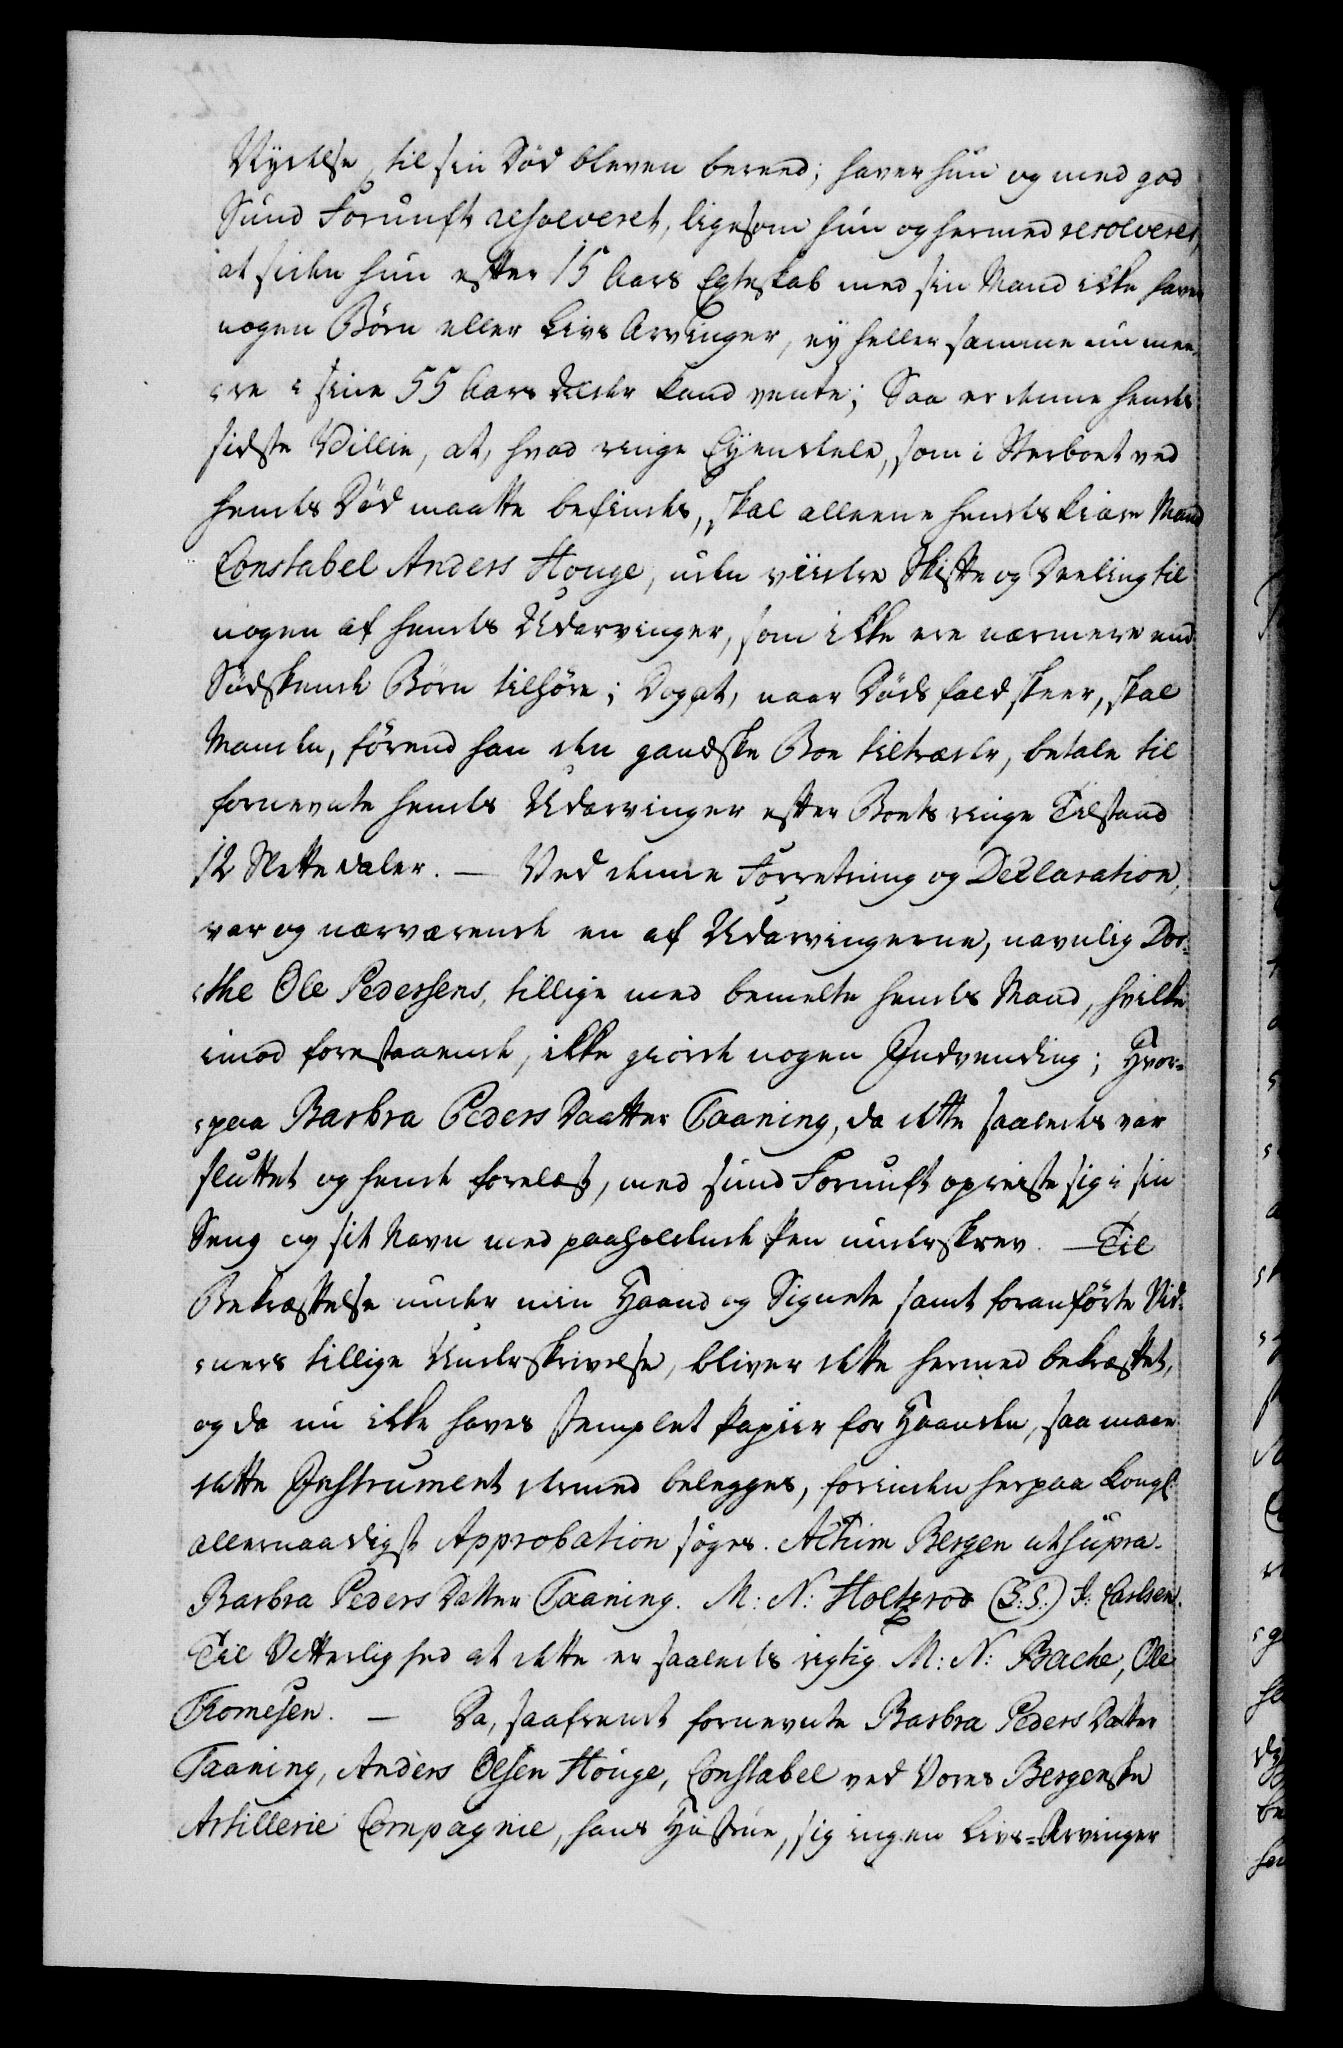 Nydelse, til sin Död bleven berend; haver hun og med god
Sund Fornuft resolveret, ligesom hun og hermed resolverer,
at siden hun efter 15 Aars Egteskab med sin Mand ikke haver
nogen Börn eller Livs Arvinger, ey heller samme nu mee-
-re i sine 55 Aars Alder kand vente; Saa er denne hendes
sidste Villie, at, hvad ringe Eyendele, som i Sterboet ved
hendes Död maatte befindes, skal alleene hendes kiære Mand
Constabel Anders Houge, uden viidre Skifte og Deeling til
nogen af hendes Udarvinger, som ikke ere nærmere end
Södskende Börn tilhöre; Dog at, naar Dödsfald skeer, skal
Manden, förend han den gandske Boe tiltræder, betale til
fornevnte hendes Udarvinger efter Boets ringe Tilstand
12 Slettedaler. — Ved denne Forretning og Declaration,
var og nærværende en af Udarvingerne, navnlig Dor-
-the Ole Pedersens, tillige med bemelte hendes Mand, hvilke
imod forestaaende, ikke giorde nogen Indvending; Hvor-
-paa Barbra Peders Daatter Taaning, da dette saaledes var
sluttet og hende forelæst, med sund Fornuft opreiste sig i sin
Seng og sit Navn med paaholdende Pen underskrev. — Til
Bekræftelse under min Haand og Signete samt foranförte Vid-
-ners tillige Underskrivelse, bliver dette hermed bekræftet,
og da nu ikke haves stemplet Papiir for Haanden, saa maae
dette Instrument dermed belegges, forinden herpaa Kongl:
allernaadigst Approbation söges. Actum Bergen ut supra.
Barbra Peders Datter Taaning. M: N: Holtzrod (L:S:) J: Carlsen.
Til Vitterlighed at dette er saaledes rigtig M: N: Bache, Ole
Thomesen. — Da, saafremt fornevnte Barbra Peders Datter
Taaning, Anders Olsen Houge, Constabel ved Vores Bergenske
Artillerie Compagnie, hans Hustrue, sig ingen Livs-Arvinger